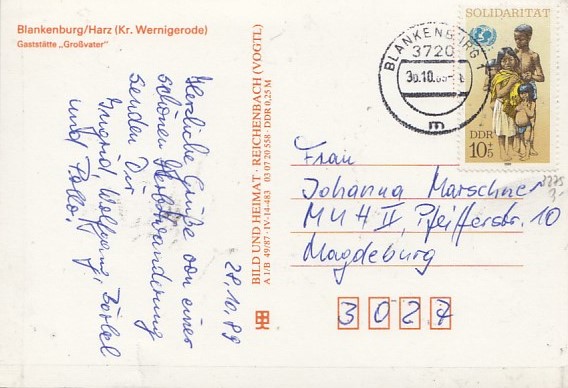 Blankenburg/Harz (Kr. Wernigerode)
Gaststätte „Großvater"
Herzliche Grüße von einer
schönen Herbstwanderung
senden Dir
Ingrid, Wolfgang, Bärbel
und
28.10.89
BILD UND HEIMAT · REICHENBACH (VOGTL)
A 1/B 49/87 · IV-14-483 03 07 20 558 · DDR 0,25 M
BLANKENBURG
3720
30.10.89
m
SOLIDARITÄT
DDR
10+5
Frau
Johanna Marschner
MUH II, Pfeifferstr. 10
Magdeburg
3027